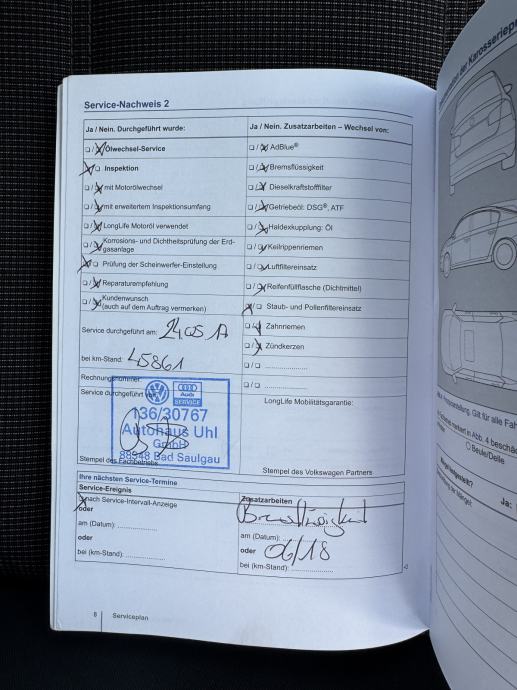 Service-Nachweis 2
Ja / Nein. Durchgeführt wurde:
Ja / Nein. Zusatzarbeiten – Wechsel von:
❏ / ❏ Ölwechsel-Service
❏ / ❏ AdBlue®
❏ / ❏ Inspektion
❏ / ❏ Bremsflüssigkeit
❏ / ❏ mit Motorölwechsel
❏ / ❏ Dieselkraftstofffilter
❏ / ❏ mit erweitertem Inspektionsumfang
❏ / ❏ Getriebeöl: DSG®, ATF
❏ / ❏ LongLife Motoröl verwendet
❏ / ❏ Haldexkupplung: Öl
❏ / ❏ Korrosions- und Dichtheitsprüfung der Erd-
gasanlage
❏ / ❏ Keilrippenriemen
❏ / ❏ Prüfung der Scheinwerfer-Einstellung
❏ / ❏ Luftfiltereinsatz
❏ / ❏ Reparaturempfehlung
❏ / ❏ Reifenfüllflasche (Dichtmittel)
❏ / ❏ Kundenwunsch
(auch auf dem Auftrag vermerken)
❏ / ❏ Staub- und Pollenfiltereinsatz
Service durchgeführt am: 24.05.17
❏ / ❏ Zahnriemen
❏ / ❏ Zündkerzen
bei km-Stand: 45861
❏ / ❏ ....................
Rechnungsnummer:
❏ / ❏ ....................
Service durchgeführt von:
LongLife Mobilitätsgarantie:
Audi
SERVICE
136/30767
Autohaus Uhl
GmbH
88348 Bad Saulgau
Stempel des Fachbetriebs
Stempel des Volkswagen Partners
Ihre nächsten Service-Termine
Service-Ereignis
Zusatzarbeiten
❏ nach Service-Intervall-Anzeige
Bremsflüssigkeit
oder
am (Datum): ....................
am (Datum): ....................
oder
oder 06/18
bei (km-Stand): ....................
bei (km-Stand): ....................
8 Serviceplan
der Karosserie
Gilt für alle
markiert in Abb. 4
Beule/Delle
Ja: